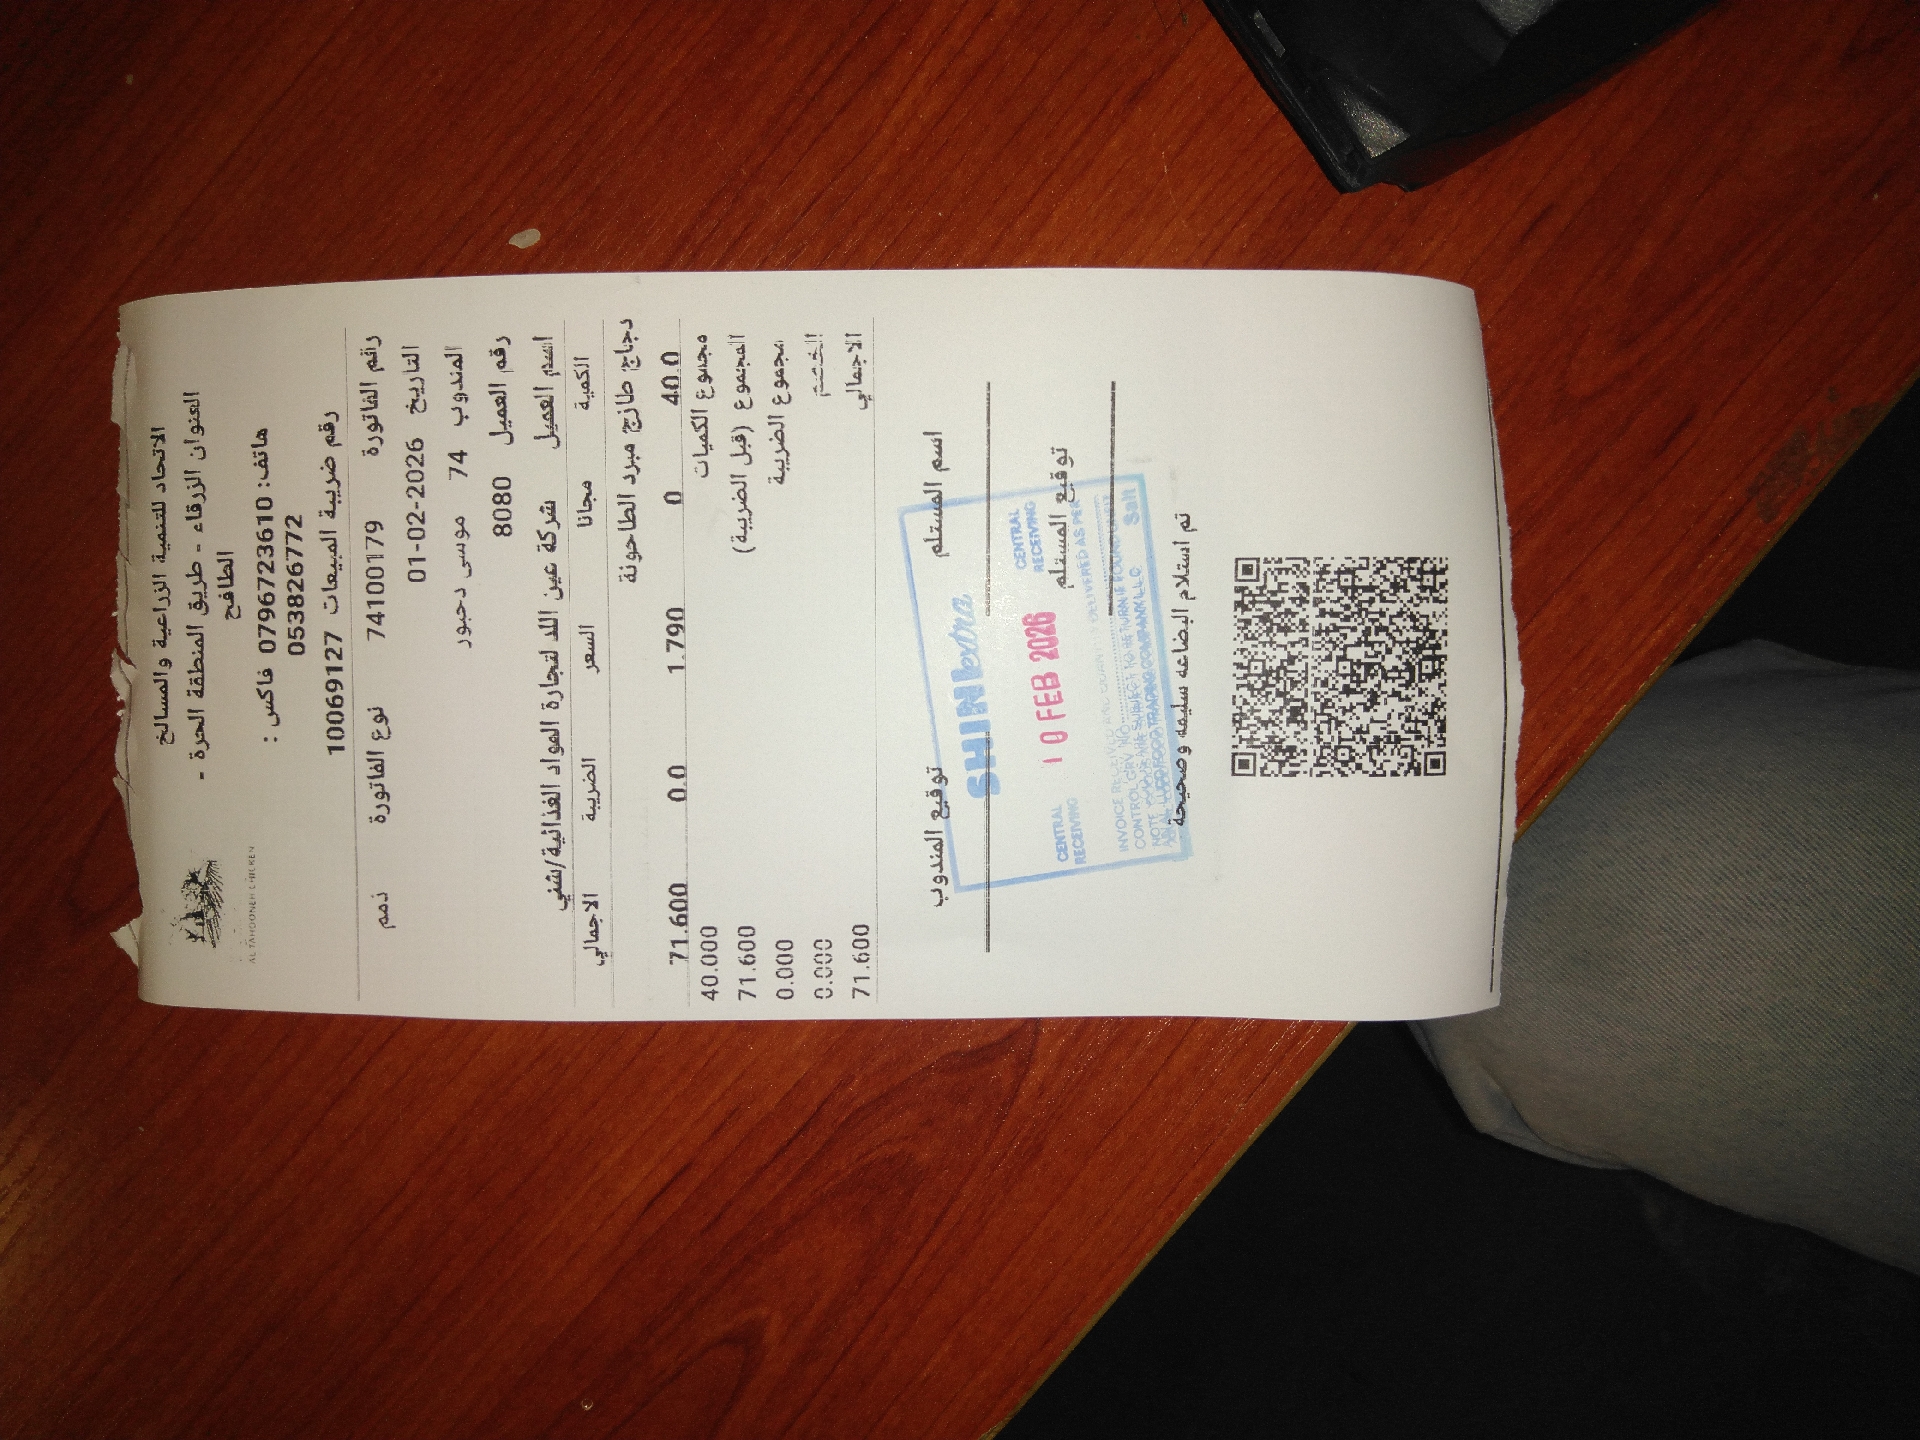 الاتحاد للتنمية الزراعية والمسالخ
العنوان الزرقاء - طريق المنطقة الحرة -
الطافح
هاتف: 0796723610 فاكس :
053826772
رقم ضريبة المبيعات 10069127
AL TAHOONEH CHICKEN
رقم الفاتورة 74100179 نوع الفاتورة ذمم
التاريخ 01-02-2026
المندوب 74 موسى دحبور
رقم العميل 8080
اسم العميل شركة عين اللد لتجارة المواد الغذائية/شني
الكمية مجانا السعر الضريبة الاجمالي
دجاج طازج مبرد الطاحونة
40.0 0 1.790 0.0 71.600
مجموع الكميات 40.000
المجموع (قبل الضريبة) 71.600
مجموع الضريبة 0.000
الخصم 0.000
الاجمالي 71.600
اسم المستلم توقيع المندوب
SHINI extra
CENTRAL RECEIVING
10 FEB 2026
CENTRAL RECEIVING
توقيع المستلم
INVOICE RECEIVED AND QUANTITY DELIVERED AS PER
CONTROL GRV NO
Salt
تم استلام البضاعه سليمه وصحيحة